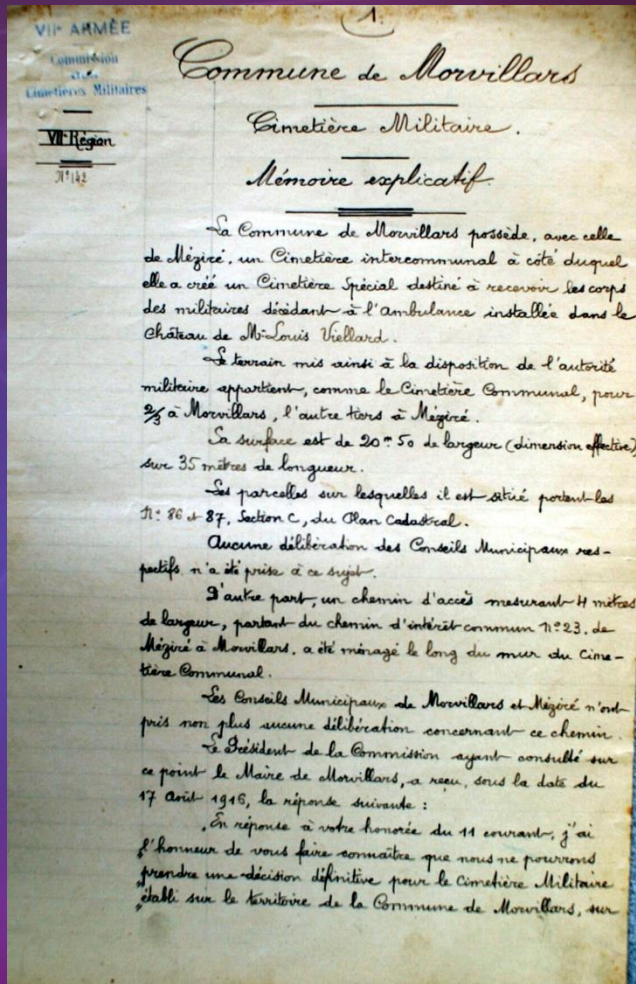 1.
VIIe ARMÉE
Commission
des
Cimetières Militaires
VIIe Région
N° 142
Commune de Morvillars
Cimetière Militaire.
Mémoire explicatif.
La Commune de Morvillars possède, avec celle
de Méziré, un Cimetière intercommunal à côté duquel
elle a créé un Cimetière Spécial destiné à recevoir les corps
des militaires décédant à l'Ambulance installée dans le
Château de Mr Louis Viellard.
Le terrain mis ainsi à la disposition de l'autorité
militaire appartient, comme le Cimetière Communal, pour
2/3 à Morvillars, l'autre tiers à Méziré.
Sa surface est de 20m 50 de largeur (dimension effective)
sur 35 mètres de longueur.
Les parcelles sur lesquelles il est situé portent les
Nos 86 et 87, Section C, du Plan Cadastral.
Aucune délibération des Conseils Municipaux res-
pectifs n'a été prise à ce sujet.
D'autre part, un chemin d'accès mesurant 4 mètres
de largeur, partant du chemin d'intérêt commun N° 23, de
Méziré à Morvillars, a été ménagé le long du mur du Cime-
tière Communal.
Les Conseils Municipaux de Morvillars et Méziré n'ont
pris non plus aucune délibération concernant ce chemin.
Le Président de la Commission ayant consulté sur
ce point le Maire de Morvillars, a reçu, sous la date du
17 Août 1916, la réponse suivante :
"En réponse à votre honorée du 11 courant, j'ai
"l'honneur de vous faire connaître que nous ne pourrons
"prendre une décision définitive pour le Cimetière Militaire
"établi sur le territoire de la Commune de Morvillars, sur